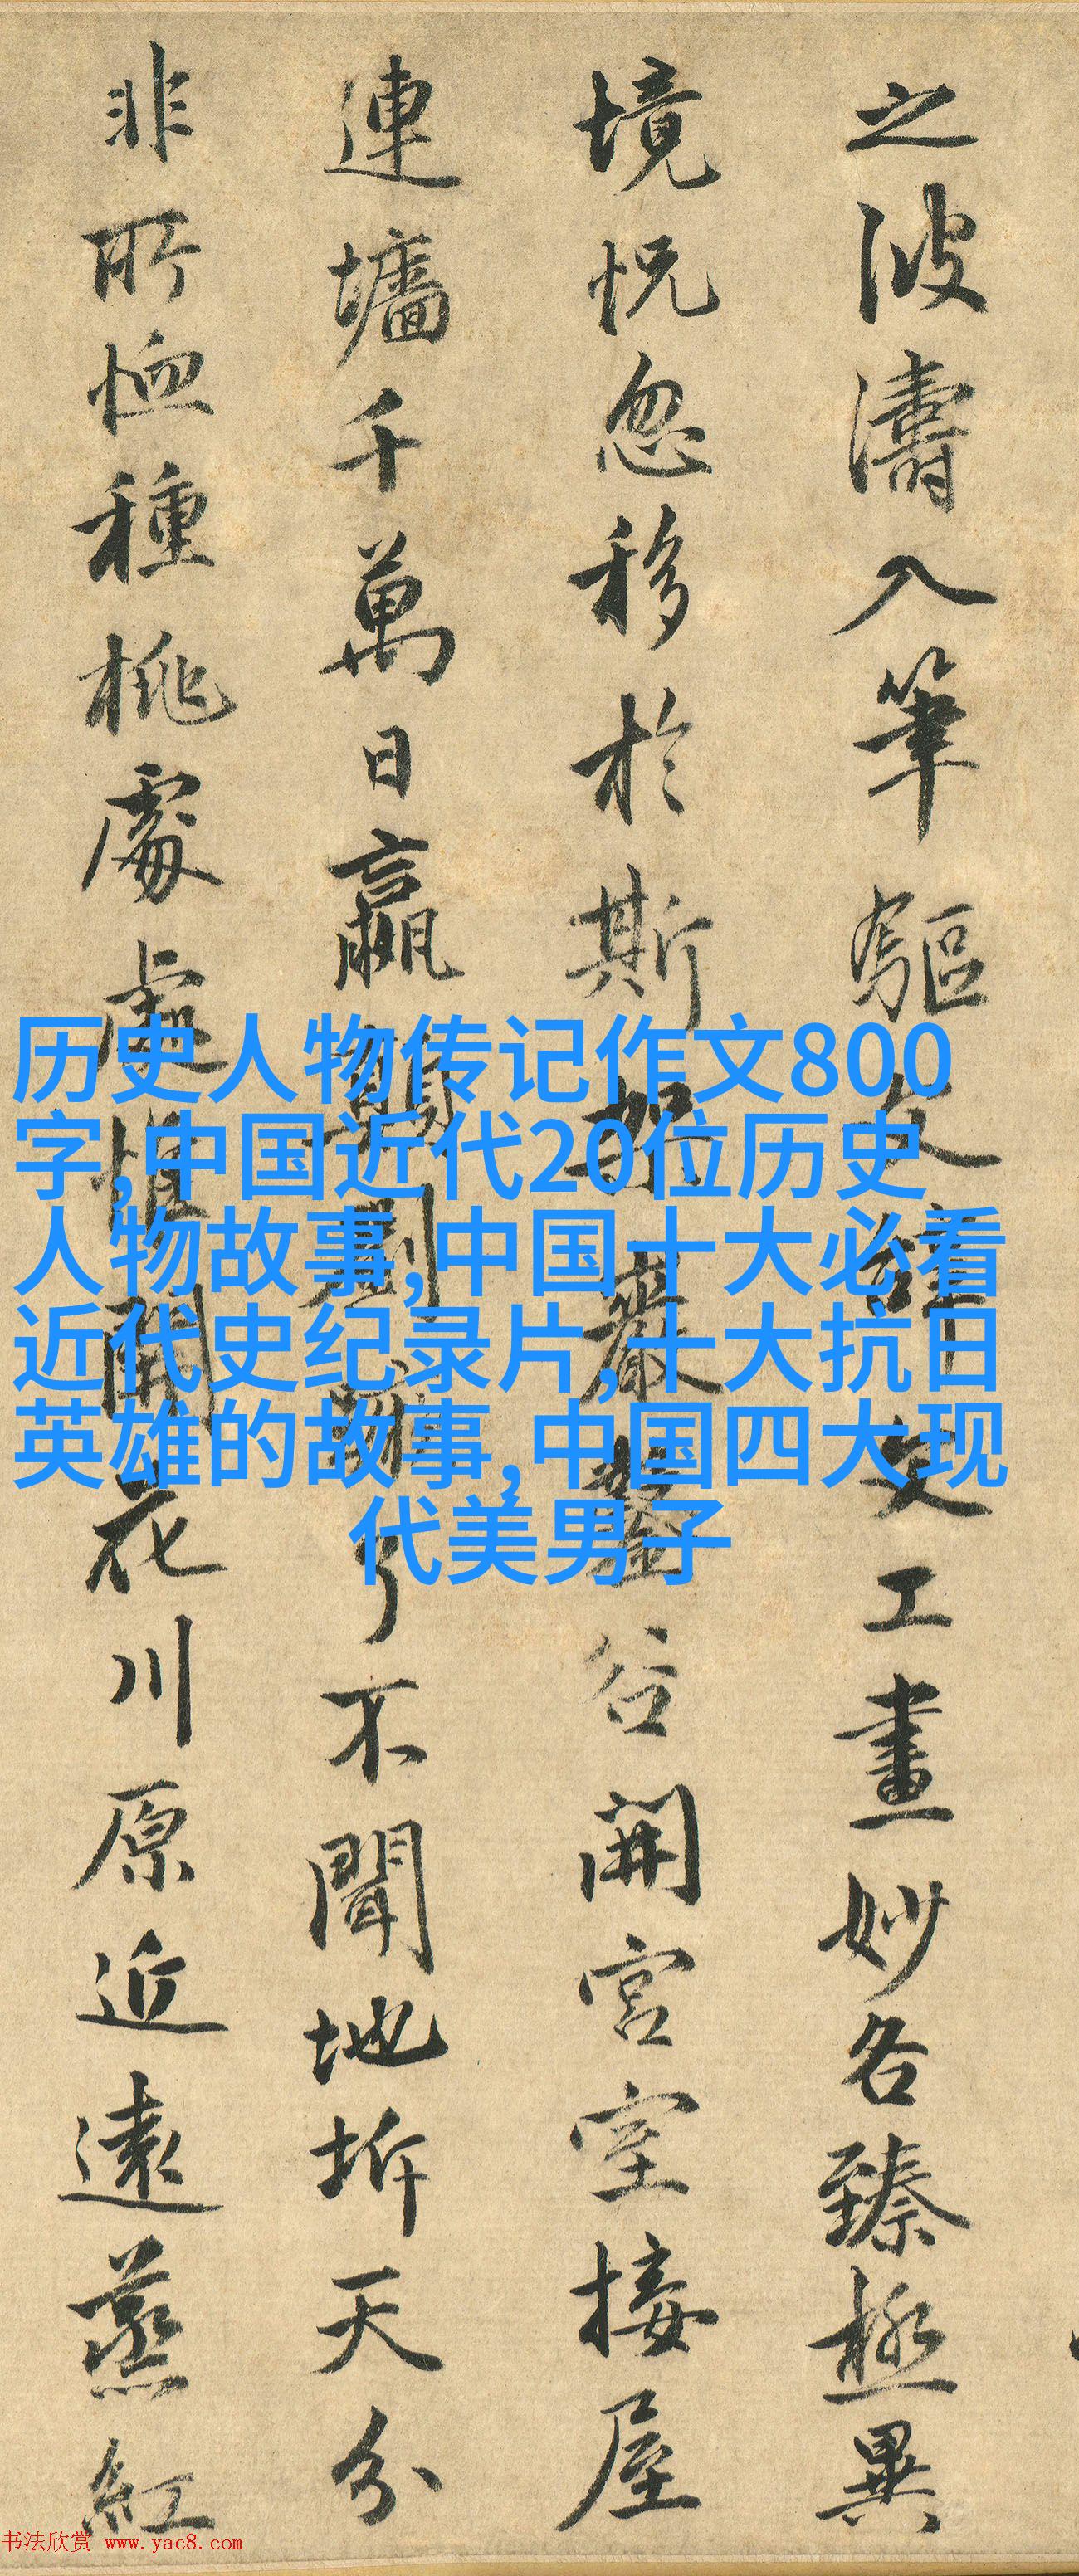 之波濤入筆驅文辭文工畫妙各臻極異
境怳忽移於斯架巖鑿谷開宮室接屋
連墻千萬日嬴顛劉蹶了不聞地坼天分
非所恤種桃處處惟開花川原近遠蒸紅
历史人物传记作文800
字,中国近代20位历史
人物故事,中国十大必看
近代史纪录片,十大抗日
英雄的故事,中国四大现
代美男子
书法欣赏 www.yac8.com